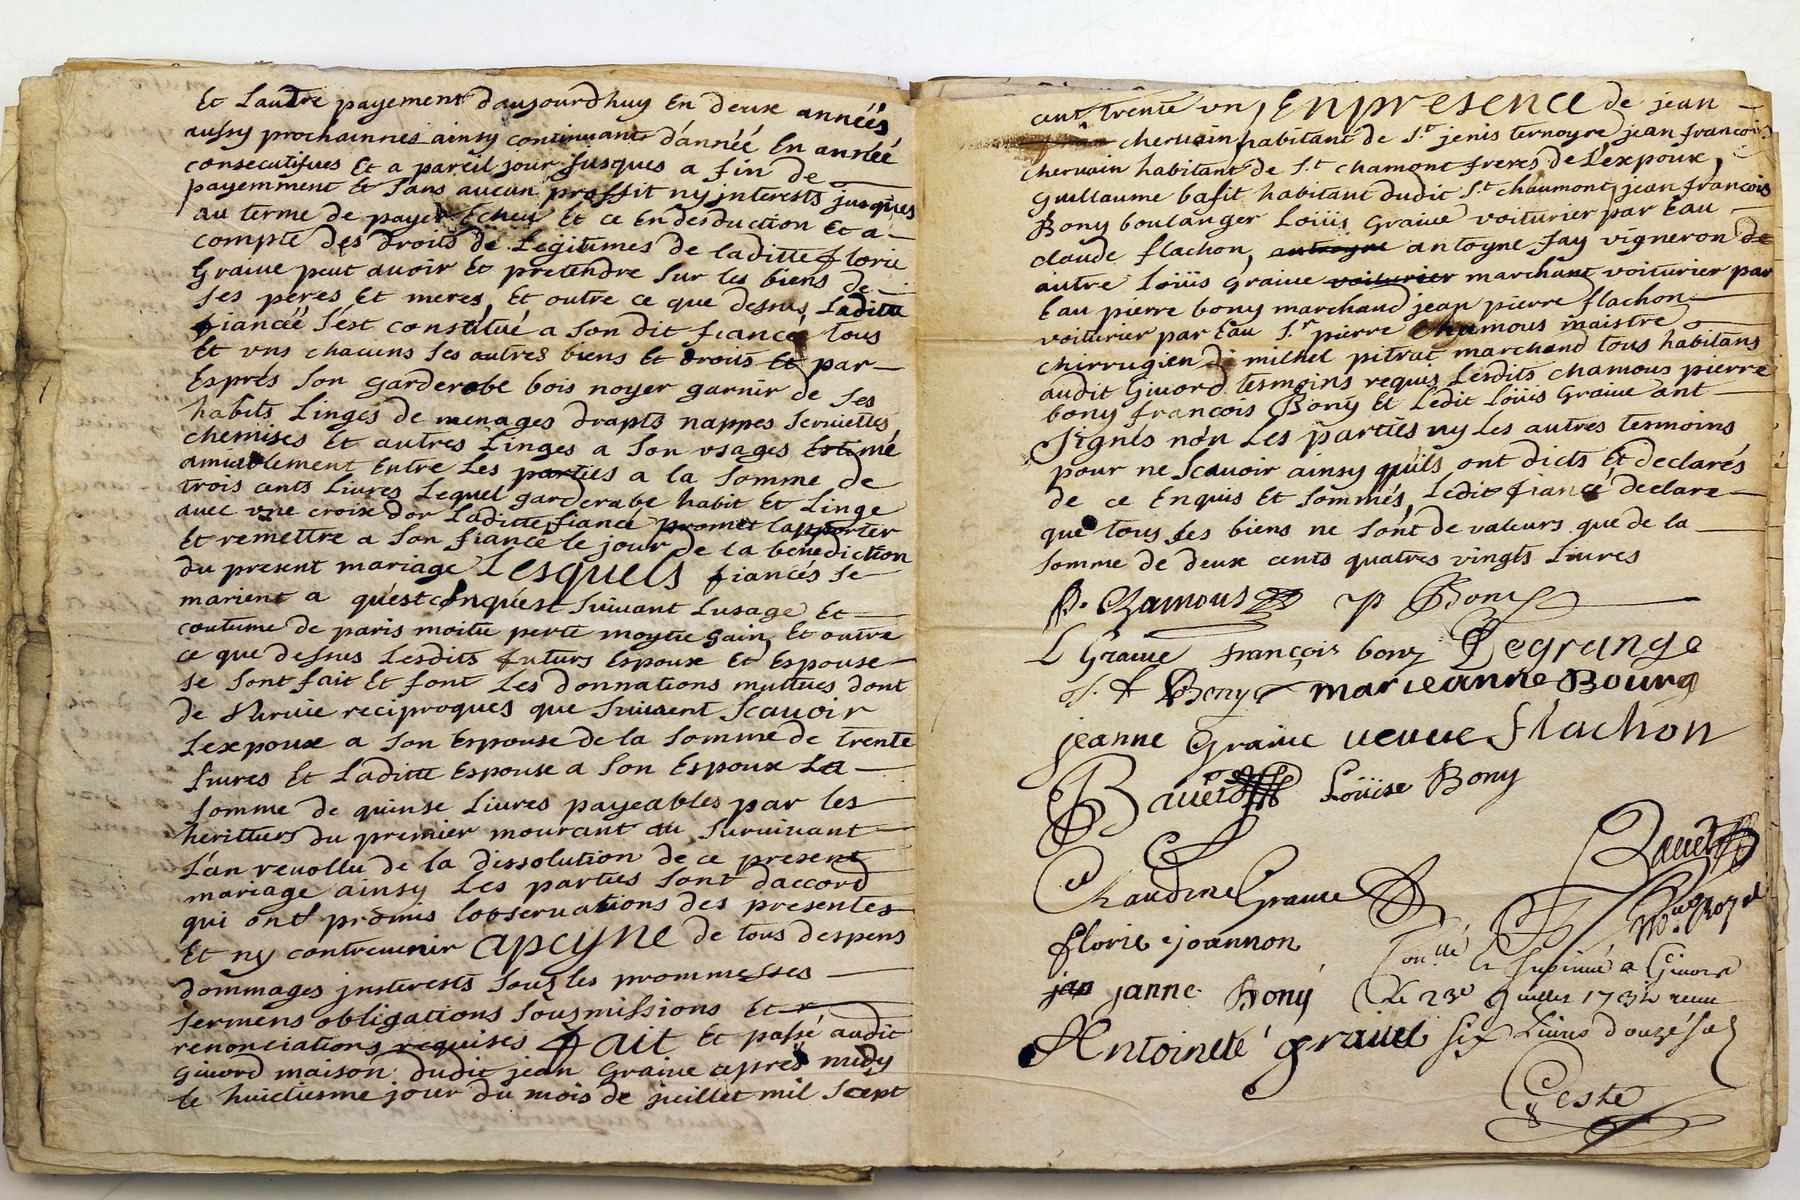 Et Lautre payement daujourdhuy En deux années
aussy prochainnes ainsy continuant dannéé En annéé
consecutifves Et a pareil jour jusques a fin de
payemment Et sans aucun proffit ny interests jusques
au terme de payer Echeu Et ce En desduction Et a
compte des droits de Legitimes de laditte florie
Graive peut avoir Et pretendre sur les biens de
ses peres Et meres, Et outre ce que dessus Laditte
fiancéé s'est constitué a son dit fiancé tous
Et vns chacuns ses autres biens Et droits Et par
Esprés son garderobe bois noyer garnir de ses
habits Linges de menages drapts nappes serviettes
chemises Et autres Linges a son vsages Estimé
amiablement Entre Les parties a la somme de
trois cents Livres Lequel garderabe habit Et Linge
avec vne croix dor Laditte fiancé promet lapporter
Et remettre a son fiancé le jour de la benediction
du present mariage Lesquels fiancés se
marient a quest conquest suivant Lusage Et
coutume de paris moitie perte moytie gain, Et outre
ce que dessus Lesdits futurs Espoux Et Espouse
se sont fait Et font Les donnations muttues dont
de survie reciproques que suivent Scavoir
Lexpoux a son Espouse de la somme de trente
Livres Et Laditte Espouse a son Espoux La
somme de quinse Livres payeables par les
herittiers du premier mourant au survivant
L'an revollu de la dissolution de ce present
mariage ainsy Les parties sont daccord
qui ont promis lobservations des presentes
Et ny contrevenir apeyne de tous despens
dommages justerests sous les prommesses
sermens obligations sousmissions Et
renonciations requises fait Et passé audit
Givord maison dudit jean Graive apres midy
le huictiesme jour du mois de juillet mil Scept
cent trente vn, En presence de jean
chervain habitant de S.t jenis ternoyre jean francois
chervain habitant de S.t chamont freres de Lexpoux,
Guillaume basit habitant dudit S.t chaumont, jean francois
Bony boulanger Loüis Graive voiturier par Eau
claude flachon, antoyne antoyne Jay vigneron de
autre Loüis Graive voiturier marchant voiturier par
Eau pierre bony marchand jean pierre flachon
voiturier par Eau S.r pierre chamous maistre
chirrugien michel pitrat marchand tous habitans
audit Givord tesmoins requis Lesdits chamous pierre
bony francois Bony Et Ledit Loüis Graive ont
signés non Les parties ny Les autres tesmoins
pour ne scavoir ainsy quils ont dicts Et declarés
de ce Enquis Et sommés, Ledit fiancé declare
que tous ses biens ne sont de valeurs que de la
somme de deux cents quatres vingts Livres
P. Chamous p Bony
L Graive françois bony Legrange
Bony marieanne Bourg
jeanne Graive veuve flachon
Bavet Loüise Bony
Bavet
Claudine Graive
florie joannon
jan janne Bony
Antoinete graive
le 23e juillet 1731
six Livres douze sols
Geste